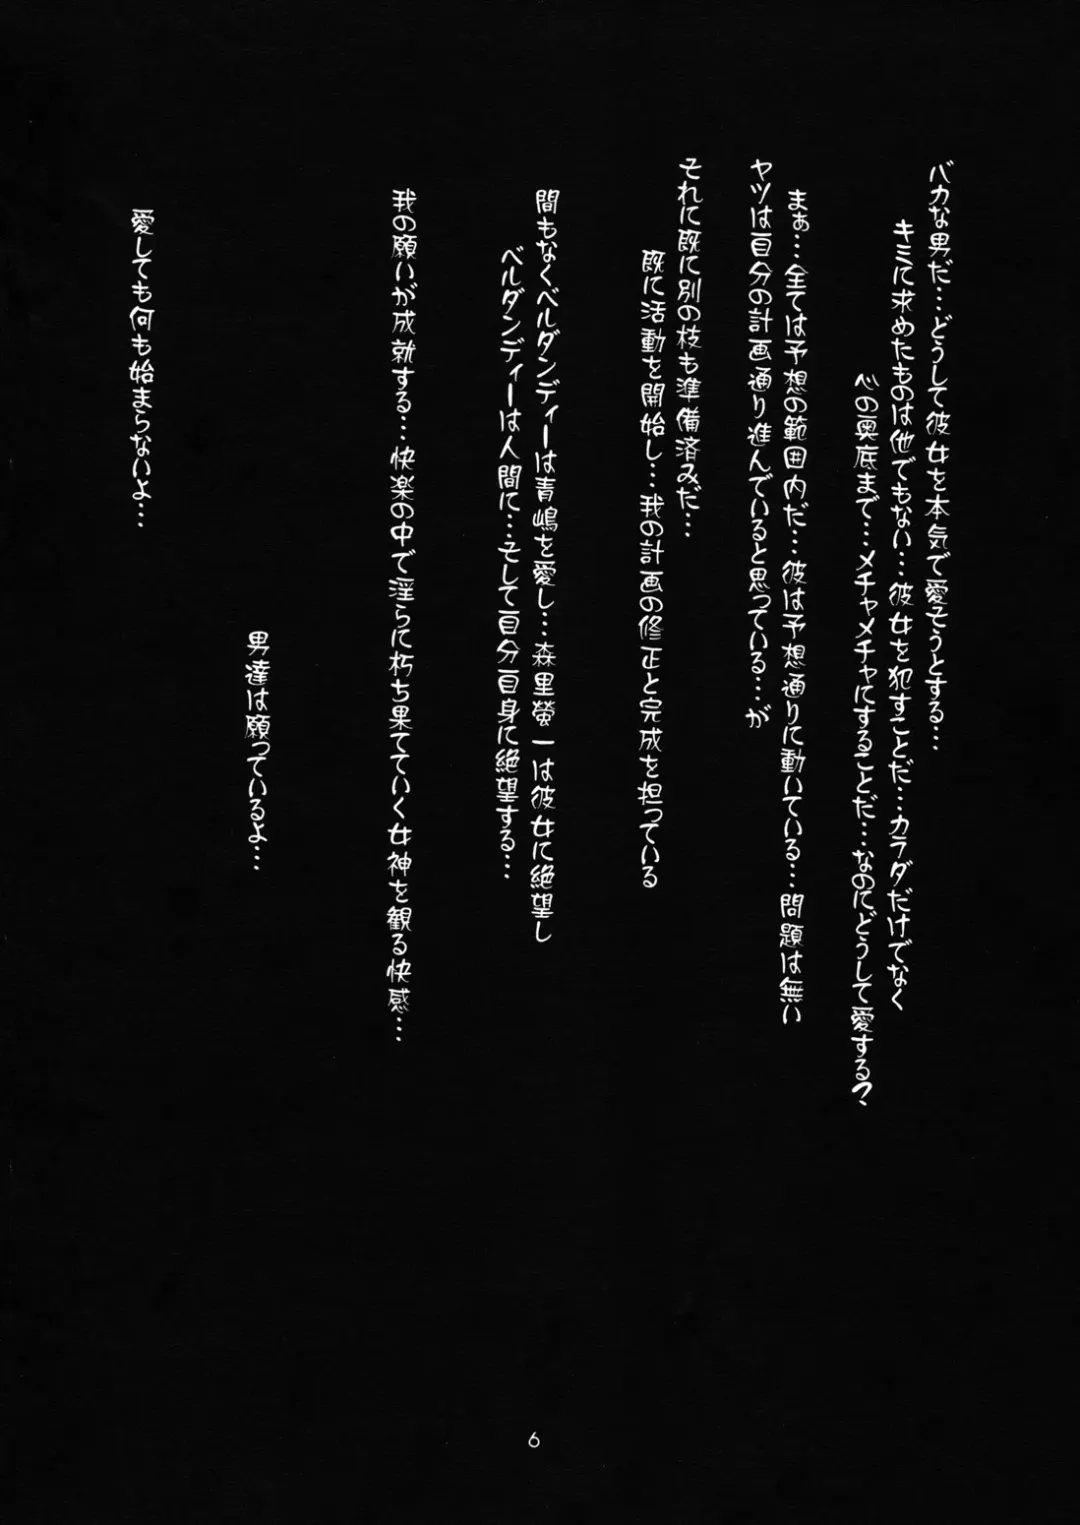 バカな男だ…どうして彼女を本気で愛そうとする…
キミに求めたものは他でもない…彼女を犯すことだ…カラダだけでなく
心の奥底まで…メチャメチャにすることだ…なのにどうして愛する？
まぁ…全ては予想の範囲内だ…彼は予想通りに動いている…問題は無い
ヤツは自分の計画通り進んでいると思っている…が
それに既に別の枝も準備済みだ…
既に活動を開始し…我の計画の修正と完成を担っている
間もなくベルダンディーは青嶋を愛し…森里螢一は彼女に絶望し
ベルダンディーは人間に…そして自分自身に絶望する…
我の願いが成就する…快楽の中で淫らに朽ち果てていく女神を観る快感…
男達は願っているよ…
愛しても何も始まらないよ…
6